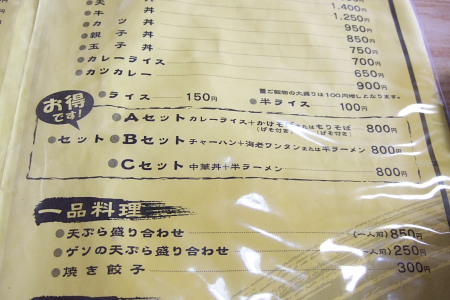 1,400円
天丼 1,250円
牛丼 950円
●カツ丼 850円
●親子丼 750円
●玉子丼 700円
●カレーライス 650円
●カツカレー 900円
■ご飯物の大盛りは100円増しとなります。
●ライス 150円 ●半ライス 100円
お得
です!
●Aセット カレーライス+かけそば(げそ付き)またはもりそば(げそ付き) 800円
●セット●Bセット チャーハン+海老ワンタンまたは半ラーメン 800円
●Cセット 中華丼+半ラーメン 800円
一品料理
●天ぷら盛り合わせ (一人前)850円
●ゲソの天ぷら盛り合わせ (一人前)250円
●焼き餃子 300円